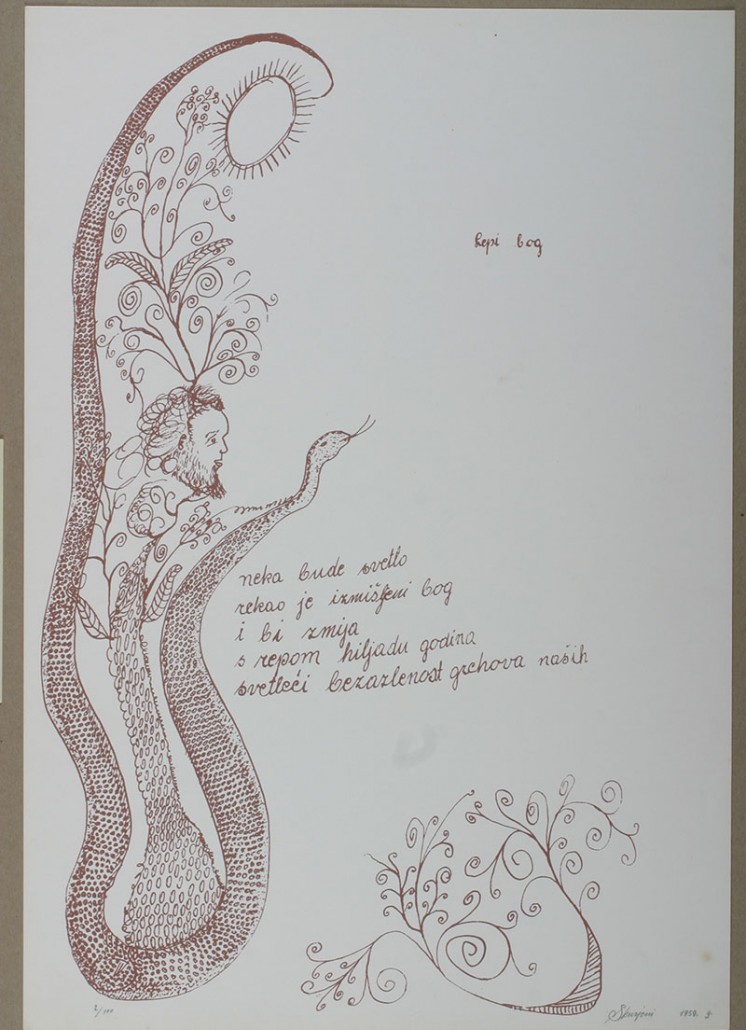 Repi bog
neka bude svetlo
rekao je izmišljeni bog
i bi zmija
s repom hiljadu godina
svetleći bezazlenost grehova naših
2/100